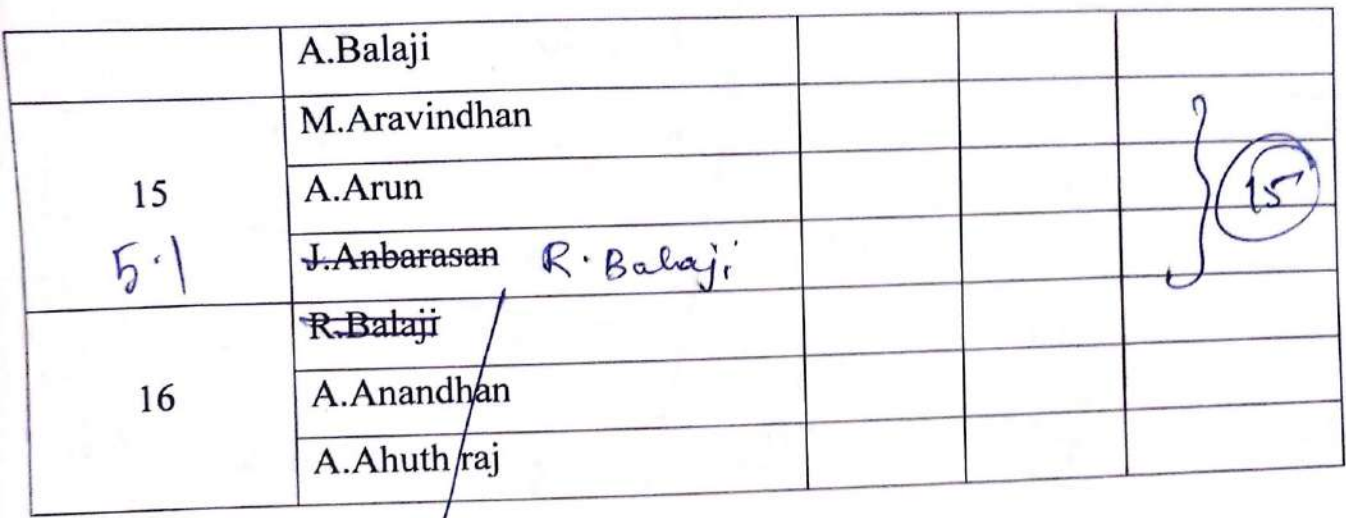 A.Balaji
M.Aravindhan
15 A.Arun 15
5.1 J.Anbarasan R.Balaji
R.Balaji
16 A.Anandhan
A.Ahuth raj